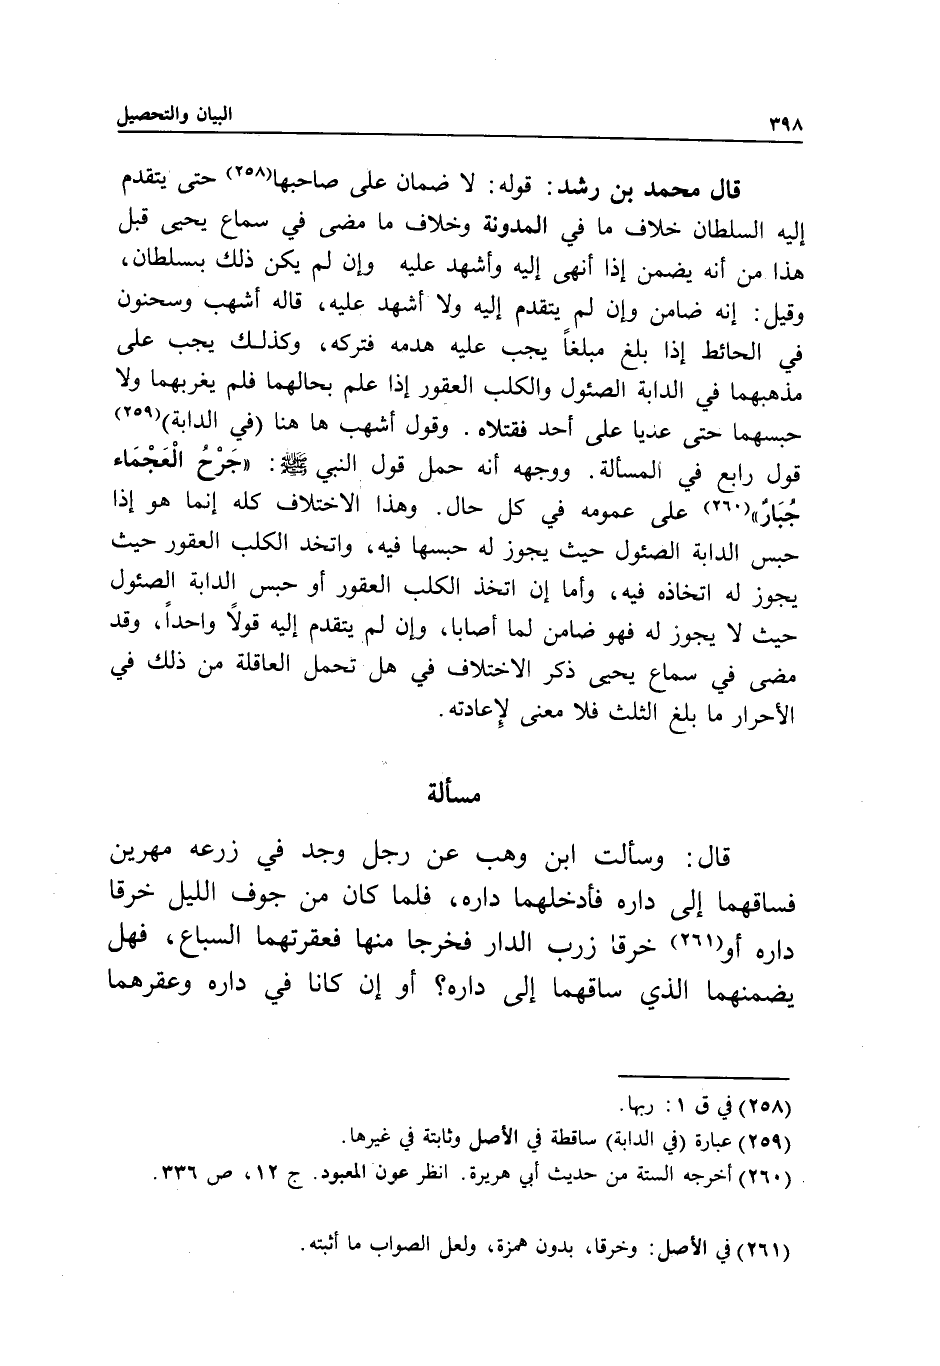 ٣٩٨
البيان والتحصيل
قال محمد بن رشد: قوله: لا ضمان على صاحبها(٢٥٨) حتى يتقدم
إليه السلطان خلاف ما في المدونة وخلاف ما مضى في سماع يحيى قبل
هذا من أنه يضمن إذا أنهى إليه وأشهد عليه وإن لم يكن ذلك بسلطان،
وقيل: إنه ضامن وإن لم يتقدم إليه ولا أشهد عليه، قاله أشهب وسحنون
في الحائط إذا بلغ مبلغاً يجب عليه هدمه فتركه، وكذلك يجب على
مذهبهما في الدابة الصئول والكلب العقور إذا علم بحالهما فلم يغربهما ولا
حبسهما حتى عديا على أحد فقتلاه. وقول أشهب ها هنا (في الدابة)(٢٥٩)
قول رابع في المسألة. ووجهه أنه حمل قول النبي ﷺ: «جَرْحُ الْعَجْمَاء
جُبَارٌ»(٢٦٠) على عمومه في كل حال. وهذا الاختلاف كله إنما هو إذا
حبس الدابة الصئول حيث يجوز له حبسها فيه، واتخد الكلب العقور حيث
يجوز له اتخاذه فيه، وأما إن اتخذ الكلب العقور أو حبس الدابة الصئول
حيث لا يجوز له فهو ضامن لما أصابا، وإن لم يتقدم إليه قولاً واحداً، وقد
مضى في سماع يحيى ذكر الاختلاف في هل تحمل العاقلة من ذلك في
الأحرار ما بلغ الثلث فلا معنى لإعادته.
مسألة
قال: وسألت ابن وهب عن رجل وجد في زرعه مهرين
فساقهما إلى داره فأدخلهما داره، فلما كان من جوف الليل خرقا
داره أو(٢٦١) خرقا زرب الدار فخرجا منها فعقرتهما السباع، فهل
يضمنهما الذي ساقهما إلى داره؟ أو إن كانا في داره وعقرهما
(٢٥٨) في ق ١: ربها.
(٢٥٩) عبارة (في الدابة) ساقطة في الأصل وثابتة في غيرها.
(٢٦٠) أخرجه الستة من حديث أبي هريرة. انظر عون المعبود. ج ١٢، ص ٣٣٦.
(٢٦١) في الأصل: وخرقا، بدون همزة، ولعل الصواب ما أثبته.